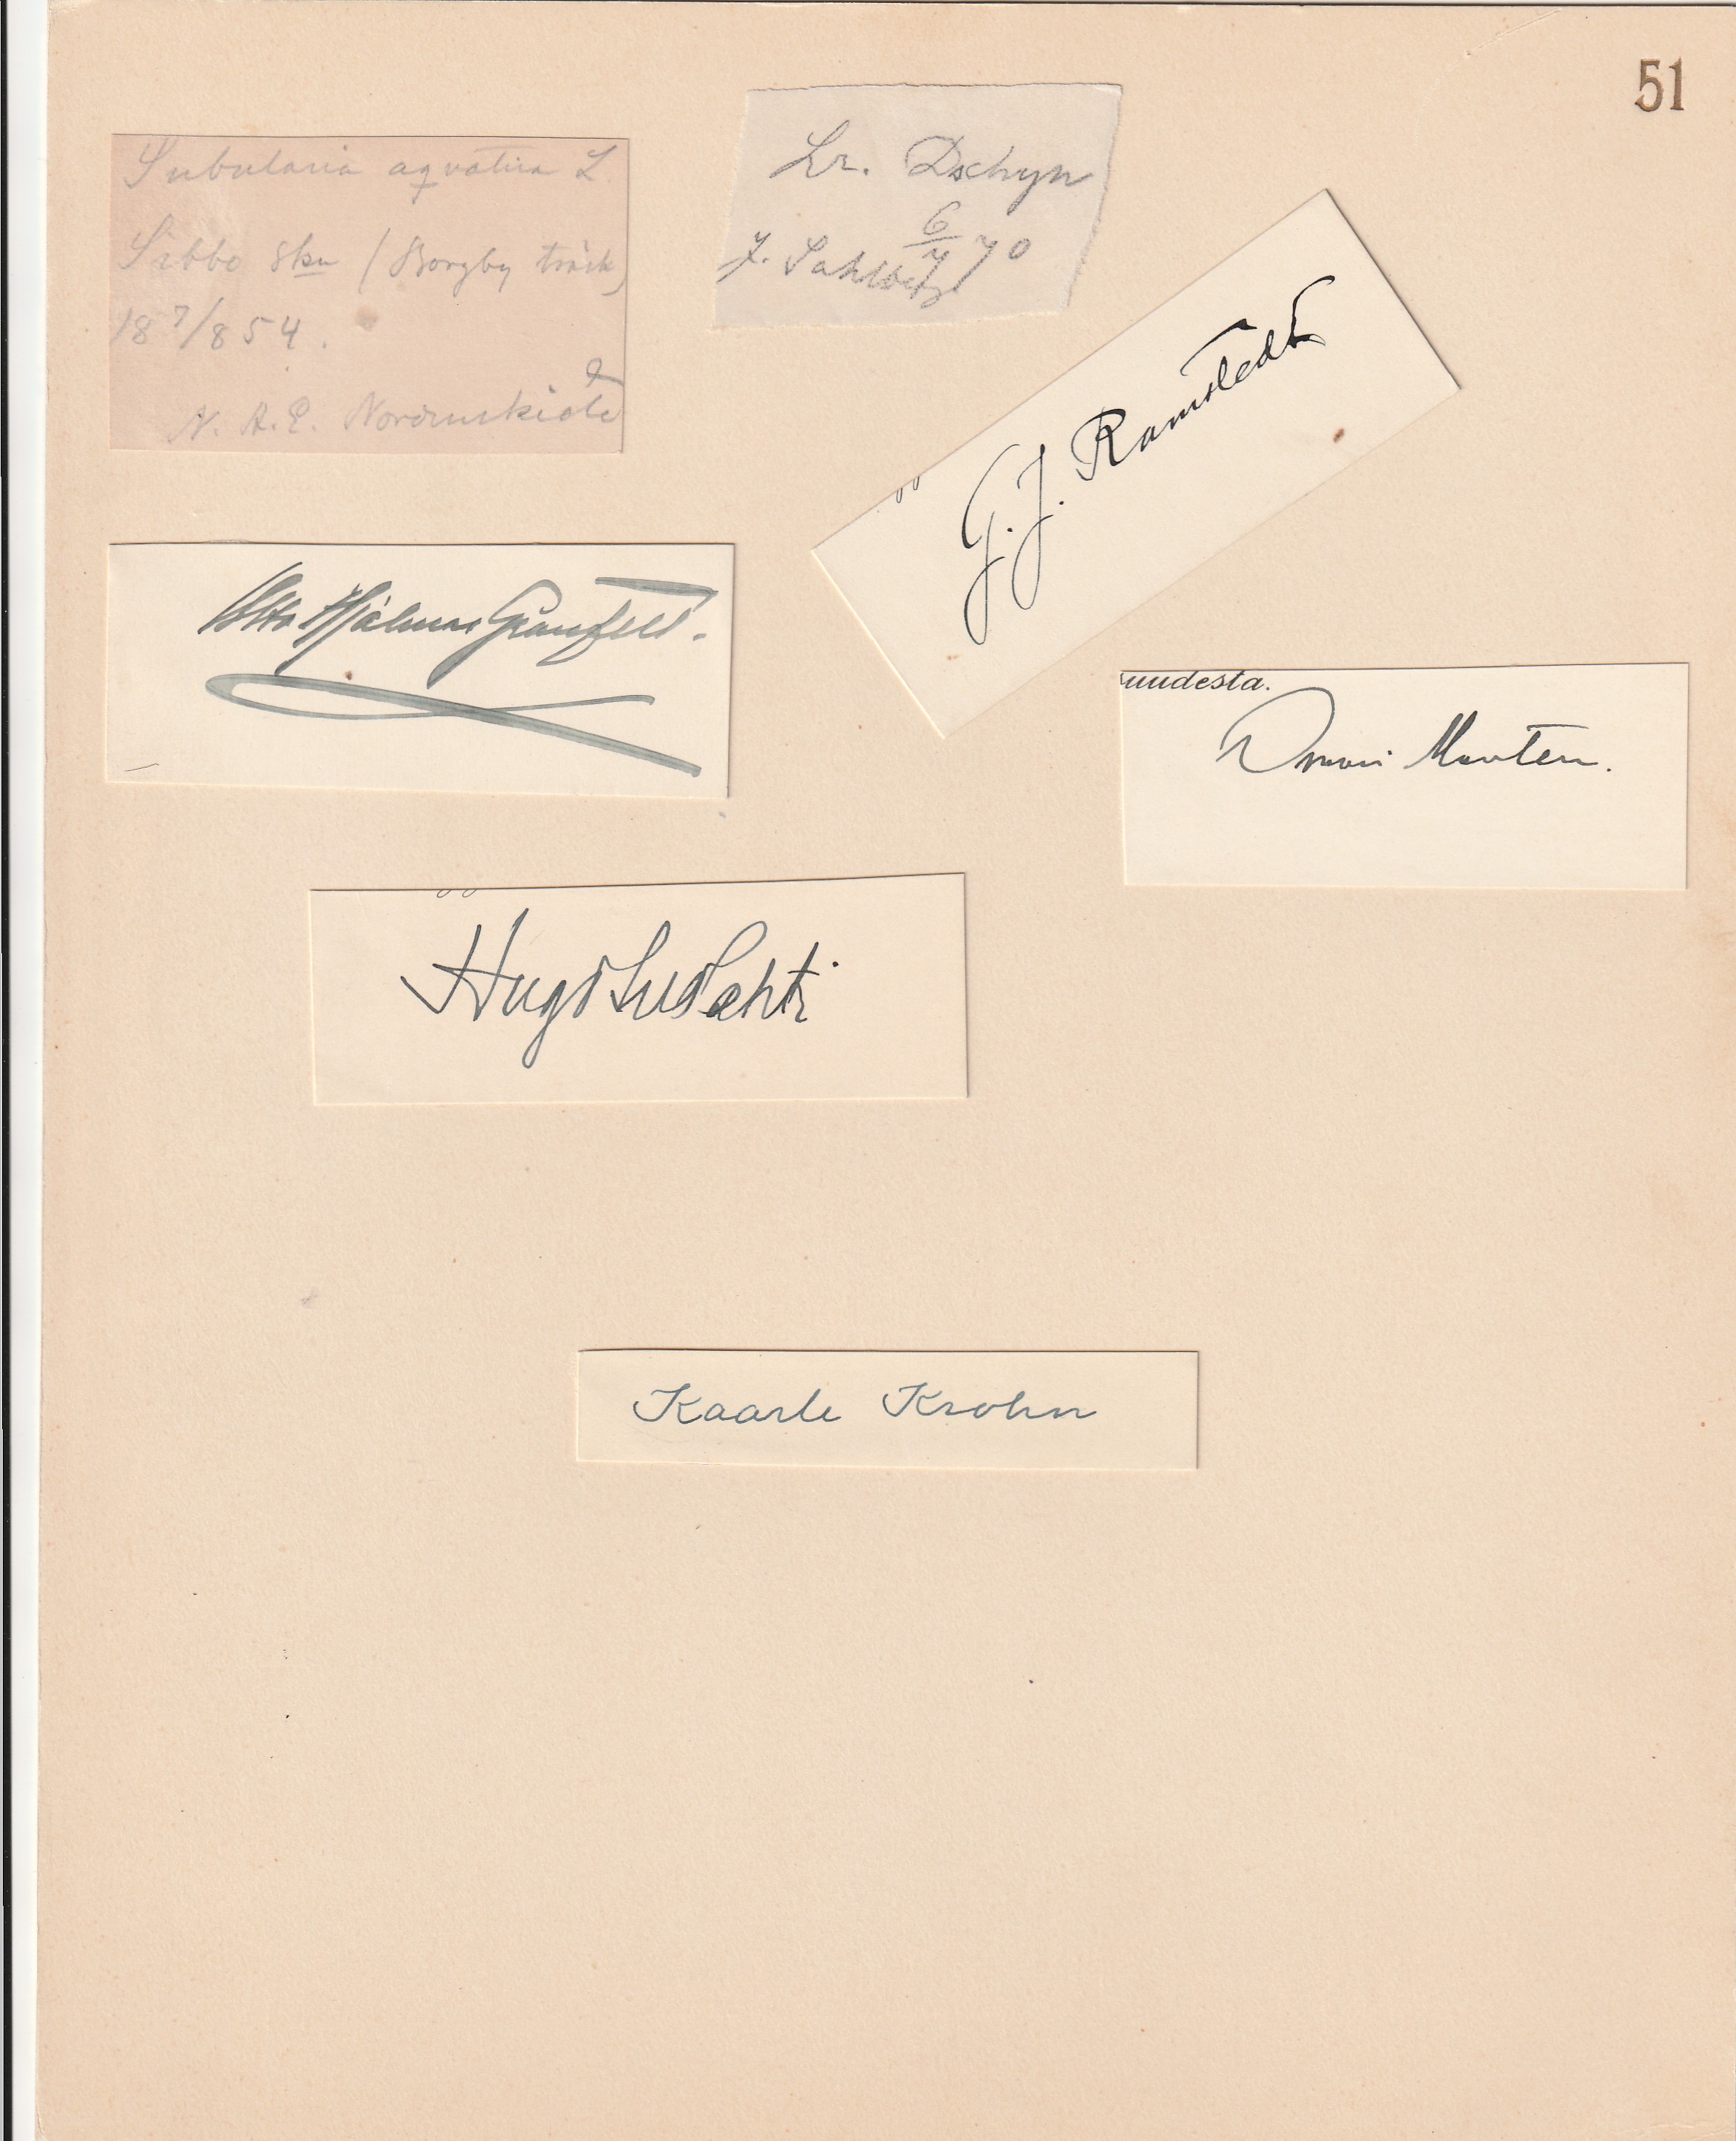 51
Subularia aqvatica L.
Sibbo skn (Borgby träsk)
18 7/8 54.
N. A. E. Nordenskiöld
Lr. Dschyn
6/7 70
J. Sahlberg
G. J. Ramstedt
Otto Hjalmar Granfelt.
uudesta.
Oskari Mantere.
Hugo Suolahti
Kaarle Krohn